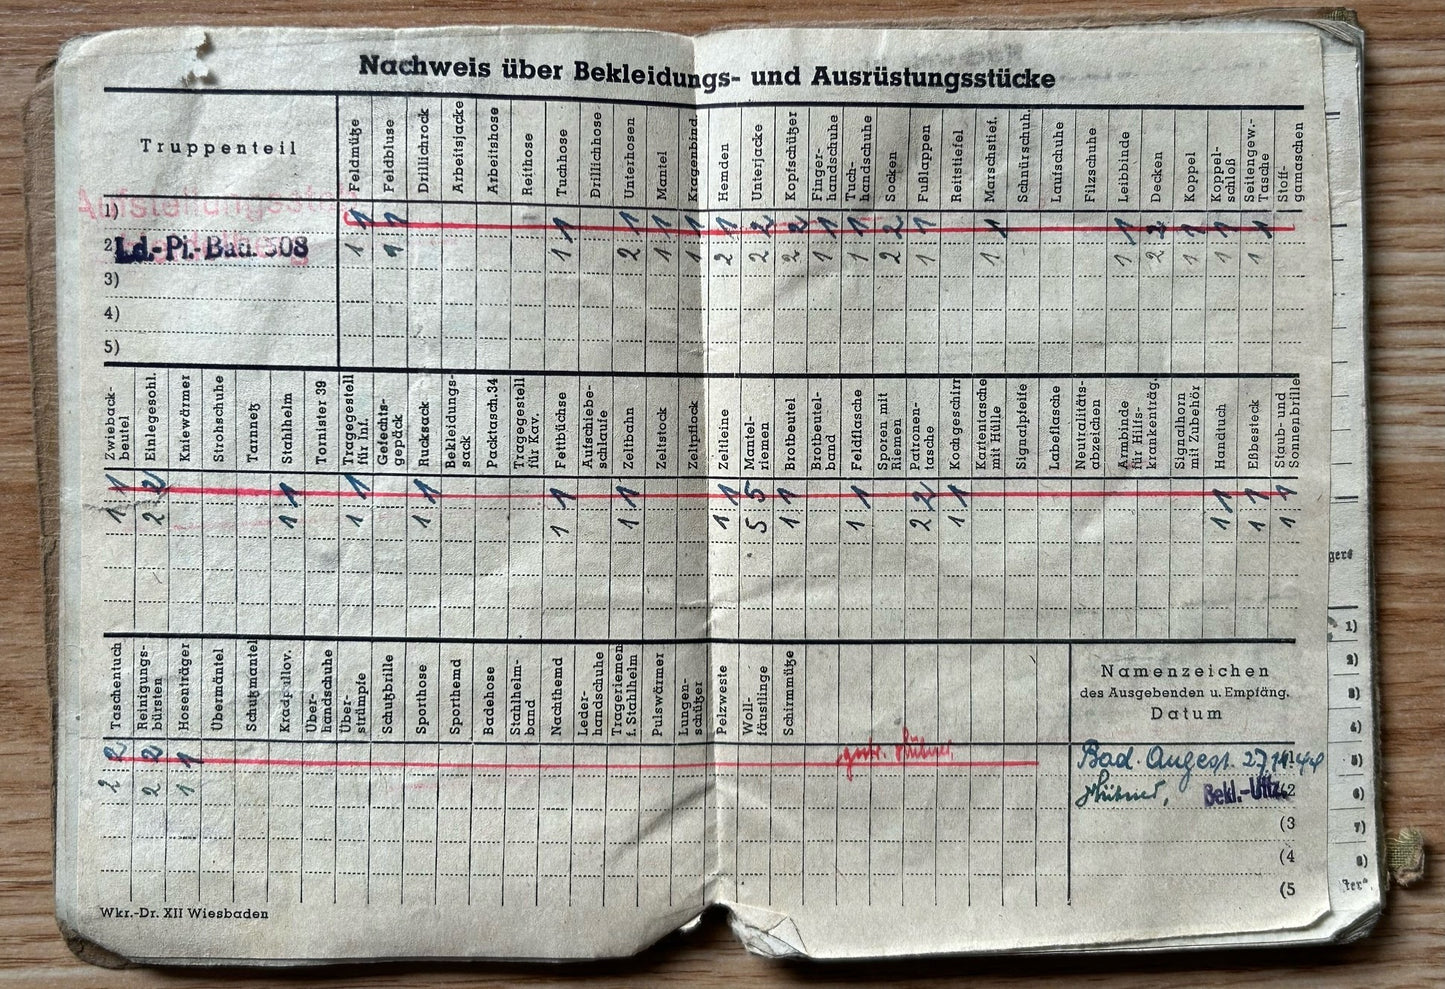 Nachweis über Bekleidungs- und Ausrüstungsstücke
Truppenteil
Feldmütze
Feldbluse
Drillichrock
Arbeitsjacke
Arbeitshose
Reithose
Tuchhose
Drillichhose
Unterhosen
Mantel
Kragenbind.
Hemden
Unterjacke
Kopfschützer
Finger-
handschuhe
Tuch-
handschuhe
Socken
Fußlappen
Reitstiefel
Marschstief.
Schnürschuh.
Laufschuhe
Filzschuhe
Leibbinde
Decken
Koppel
Koppel-
schloß
Seitengew.-
Tasche
Stoff-
gamaschen
1) Aufstellungsstab 1 1 1 1 1 1 1 2 2 1 1 2 1 1 1 2 1 1 1
2) Ld.-Pi.-Bau. 508 1 1 1 2 1 1 2 2 2 1 1 2 1 1 1 2 1 1 1
3)
4)
5)
Zwieback-
beutel
Einlegesohl.
Kniewärmer
Strohschuhe
Tarnnetz
Stahlhelm
Tornister 39
Tragegestell
für Inf.
Gefechts-
gepäck
Rucksack
Bekleidungs-
sack
Packtasch. 34
Tragegestell
für Kav.
Fettbüchse
Aufschiebe-
schlaufe
Zeltbahn
Zeltstock
Zeltpflock
Zeltleine
Mantel-
riemen
Brotbeutel
Brotbeutel-
band
Feldflasche
Sporen mit
Riemen
Patronen-
tasche
Kochgeschirr
Kartentasche
mit Hülle
Signalpfeife
Labeflasche
Neutralitäts-
abzeichen
Armbinde
für Hilfs-
krankenträg.
Signalhorn
mit Zubehör
Handtuch
Eßbesteck
Staub- und
Sonnenbrille
1 2 1 1 1 1 1 1 5 1 1 2 1 1 1 1
1 2 1 1 1 1 1 1 5 1 1 2 1 1 1 1
Taschentuch
Reinigungs-
bürsten
Hosenträger
Übermäntel
Schutzmantel
Kradpullov.
Über-
handschuhe
Über-
strümpfe
Schutzbrille
Sporthose
Sporthemd
Badehose
Stahlhelm-
band
Nachthemd
Leder-
handschuhe
Trageriemen
f. Stahlhelm
Pulswärmer
Lungen-
schützer
Pelzweste
Woll-
fäustlinge
Schirmmütze
Namenzeichen
des Ausgebenden u. Empfäng.
Datum
2 2 1 gestr. Hübner
2 2 1
Hübner, Bekl.-Uffz. (2
(3
(4
(5
Wkr.-Dr. XII Wiesbaden
gers
1)
2)
3)
4)
5)
6)
7)
8)
ter*